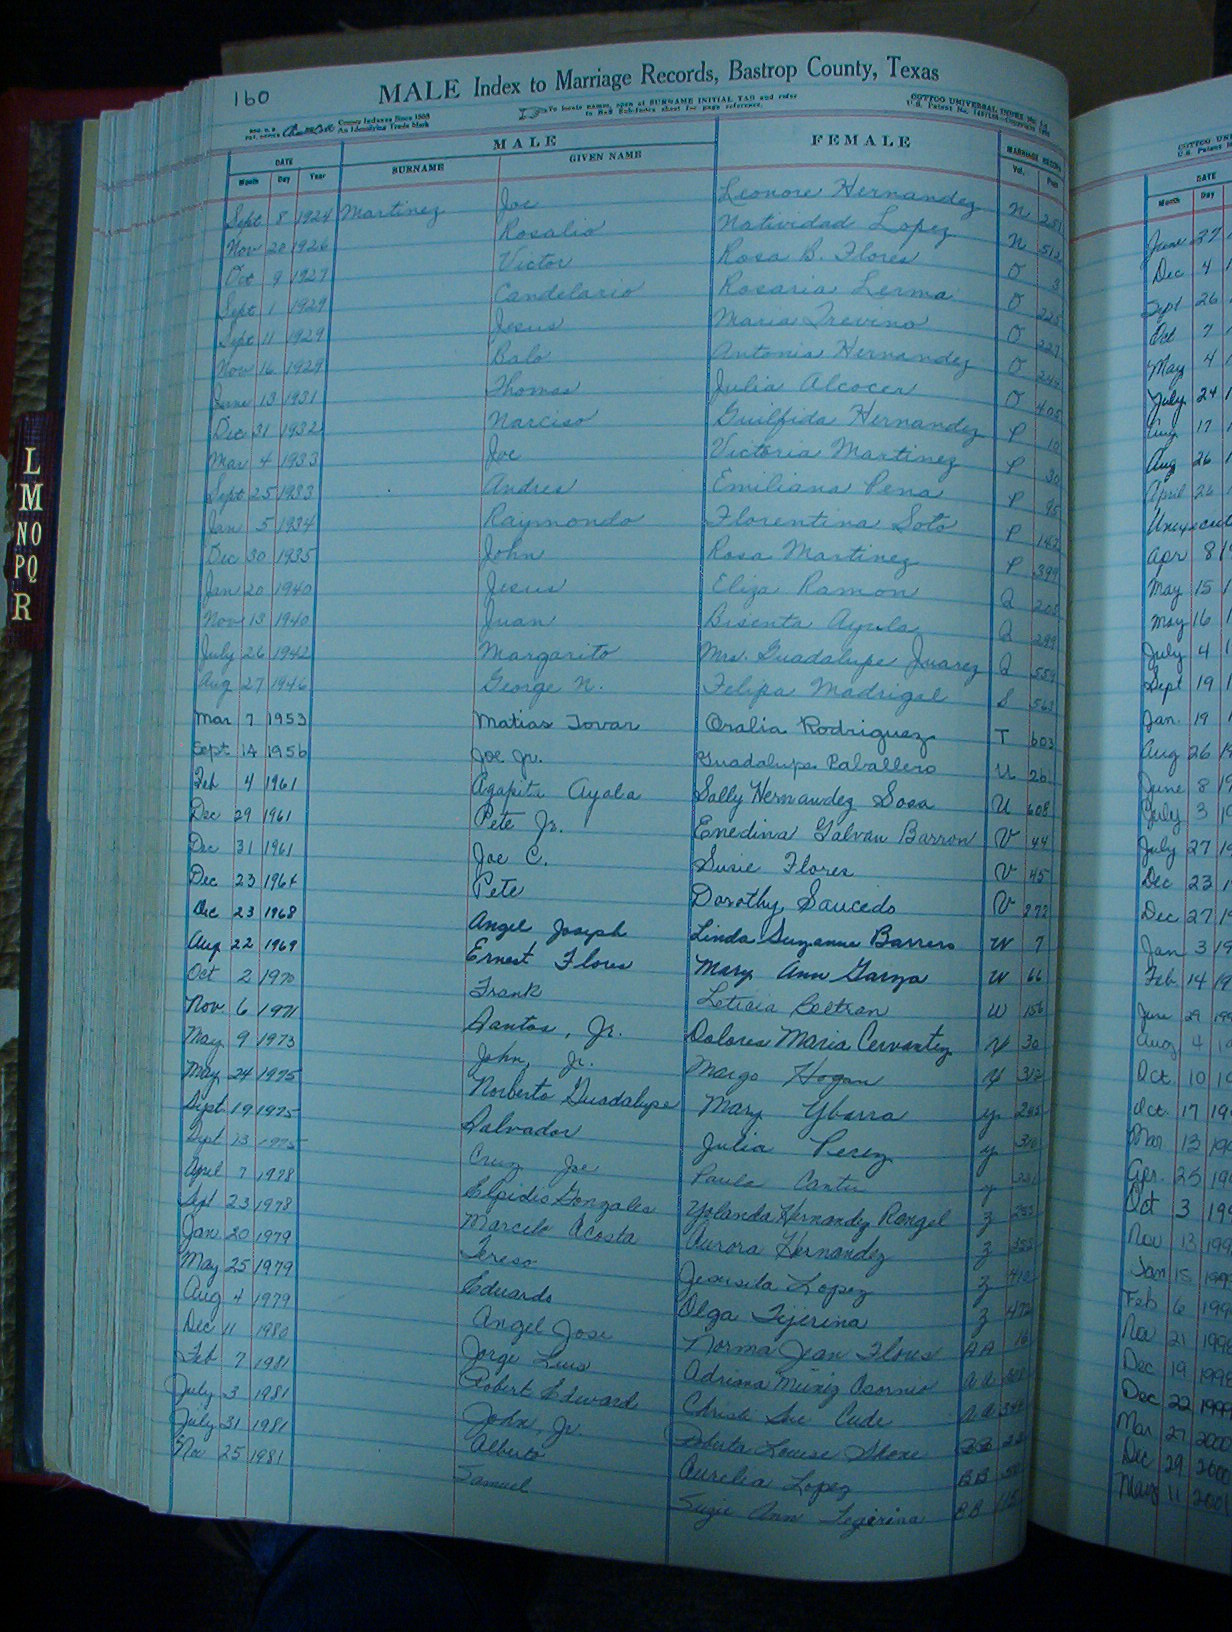 160
MALE Index to Marriage Records, Bastrop County, Texas
County Indexes Since 1888
An Identifying Trade Mark
To locate names, open at SURNAME INITIAL TAB and refer
to Sub-Index sheet for page reference.
MALE FEMALE MARRIAGE RECORD
DATE SURNAME GIVEN NAME Vol. Page
Month Day Year
Sept 8 1924 Martinez Joe Leonore Hernandez N 251
Nov 20 1926 Rosalio Natividad Lopez N 512
Oct 9 1927 Victor Rosa B. Flores O 3
Sept 1 1929 Candelario Rosaria Lerma O 225
Sept 11 1929 Jesus Maria Trevino O 227
Nov 16 1929 Balo Antonia Hernandez O 244
June 13 1931 Thomas Julia Alcocer O 405
Dec 31 1932 Narciso Guilfida Hernandez P 10
Mar 4 1933 Joe Victoria Martinez P 30
Sept 25 1933 Andres Emiliana Pena P 95
Jan 5 1934 Raymondo Florentina Soto P 142
Dec 30 1935 John Rosa Martinez P 399
Jan 20 1940 Jesus Eliza Ramon Q 205
Nov 13 1940 Juan Bisenta Ayala Q 299
July 26 1942 Margarito Mrs. Guadalupe Juarez Q 559
Aug 27 1946 George N. Felipa Madrigal S 563
Mar 7 1953 Matias Tovar Oralia Rodriguez T 603
Sept 14 1956 Joe Jr. Guadalupe Caballero U 26
Feb 4 1961 Agapito Ayala Sally Hernandez Sosa U 608
Dec 29 1961 Pete Jr. Enedina Galvan Barron V 44
Dec 31 1961 Joe C. Susie Flores V 45
Dec 23 1964 Pete Dorothy Saucedo V 272
Dec 23 1968 Angel Joseph Linda Suzanne Barrera W 7
Aug 22 1969 Ernest Flores Mary Ann Garza W 66
Oct 2 1970 Frank Leticia Beltran W 156
Nov. 6 1971 Santos, Jr. Dolores Maria Cervantez 30
May 9 1973 John, Jr. Margo Hogan 312
May 24 1975 Norberto Guadalupe Mary Ybarra Y
Sept 19 1975 Salvador Julia Perez Y
Sept 13 1975 Cruz Joe Paula Cantu Y
April 7 1978 Elpidio Gonzales Yolanda Hernandez Rangel Z
Sept 23 1978 Marcelo Acosta Aurora Hernandez Z
Jan 20 1979 Tereso Jesusita Lopez Z
May 25 1979 Eduardo Olga Tijerina Z 472
Aug 4 1979 Angel Jose Norma Jean Flores AA 16
Dec 11 1980 Jorge Luis Adriana Muniz Osornio AA
Feb 7 1981 Robert Edward Christi Sue Cude AA
July 3 1981 John, Jr. Roberta Louise Shone BB
July 31 1981 Alberto Aurelia Lopez BB
Nov 25 1981 Samuel Suzie Ann Tejerina BB
L
M
NO
PQ
R
DATE
Month Day
June 27
Dec 4
Sept 26
Oct 7
May 4
July 24
Aug 17
Aug 26
April 26
Apr 8
May 15
May 16
July 4
Sept 19
Jan. 19
Aug 26
June 8
July 3
July 27
Dec 23
Dec 27
Jan 3
Feb. 14
June 29
Aug 4
Oct. 10
Oct. 17
Mar 13
Apr. 25
Oct 3
Nov 13
Jan 15
Feb 6
Nov 21
Dec 19
Dec 22 1999
Mar 27 2000
Dec 29 2000
May 11